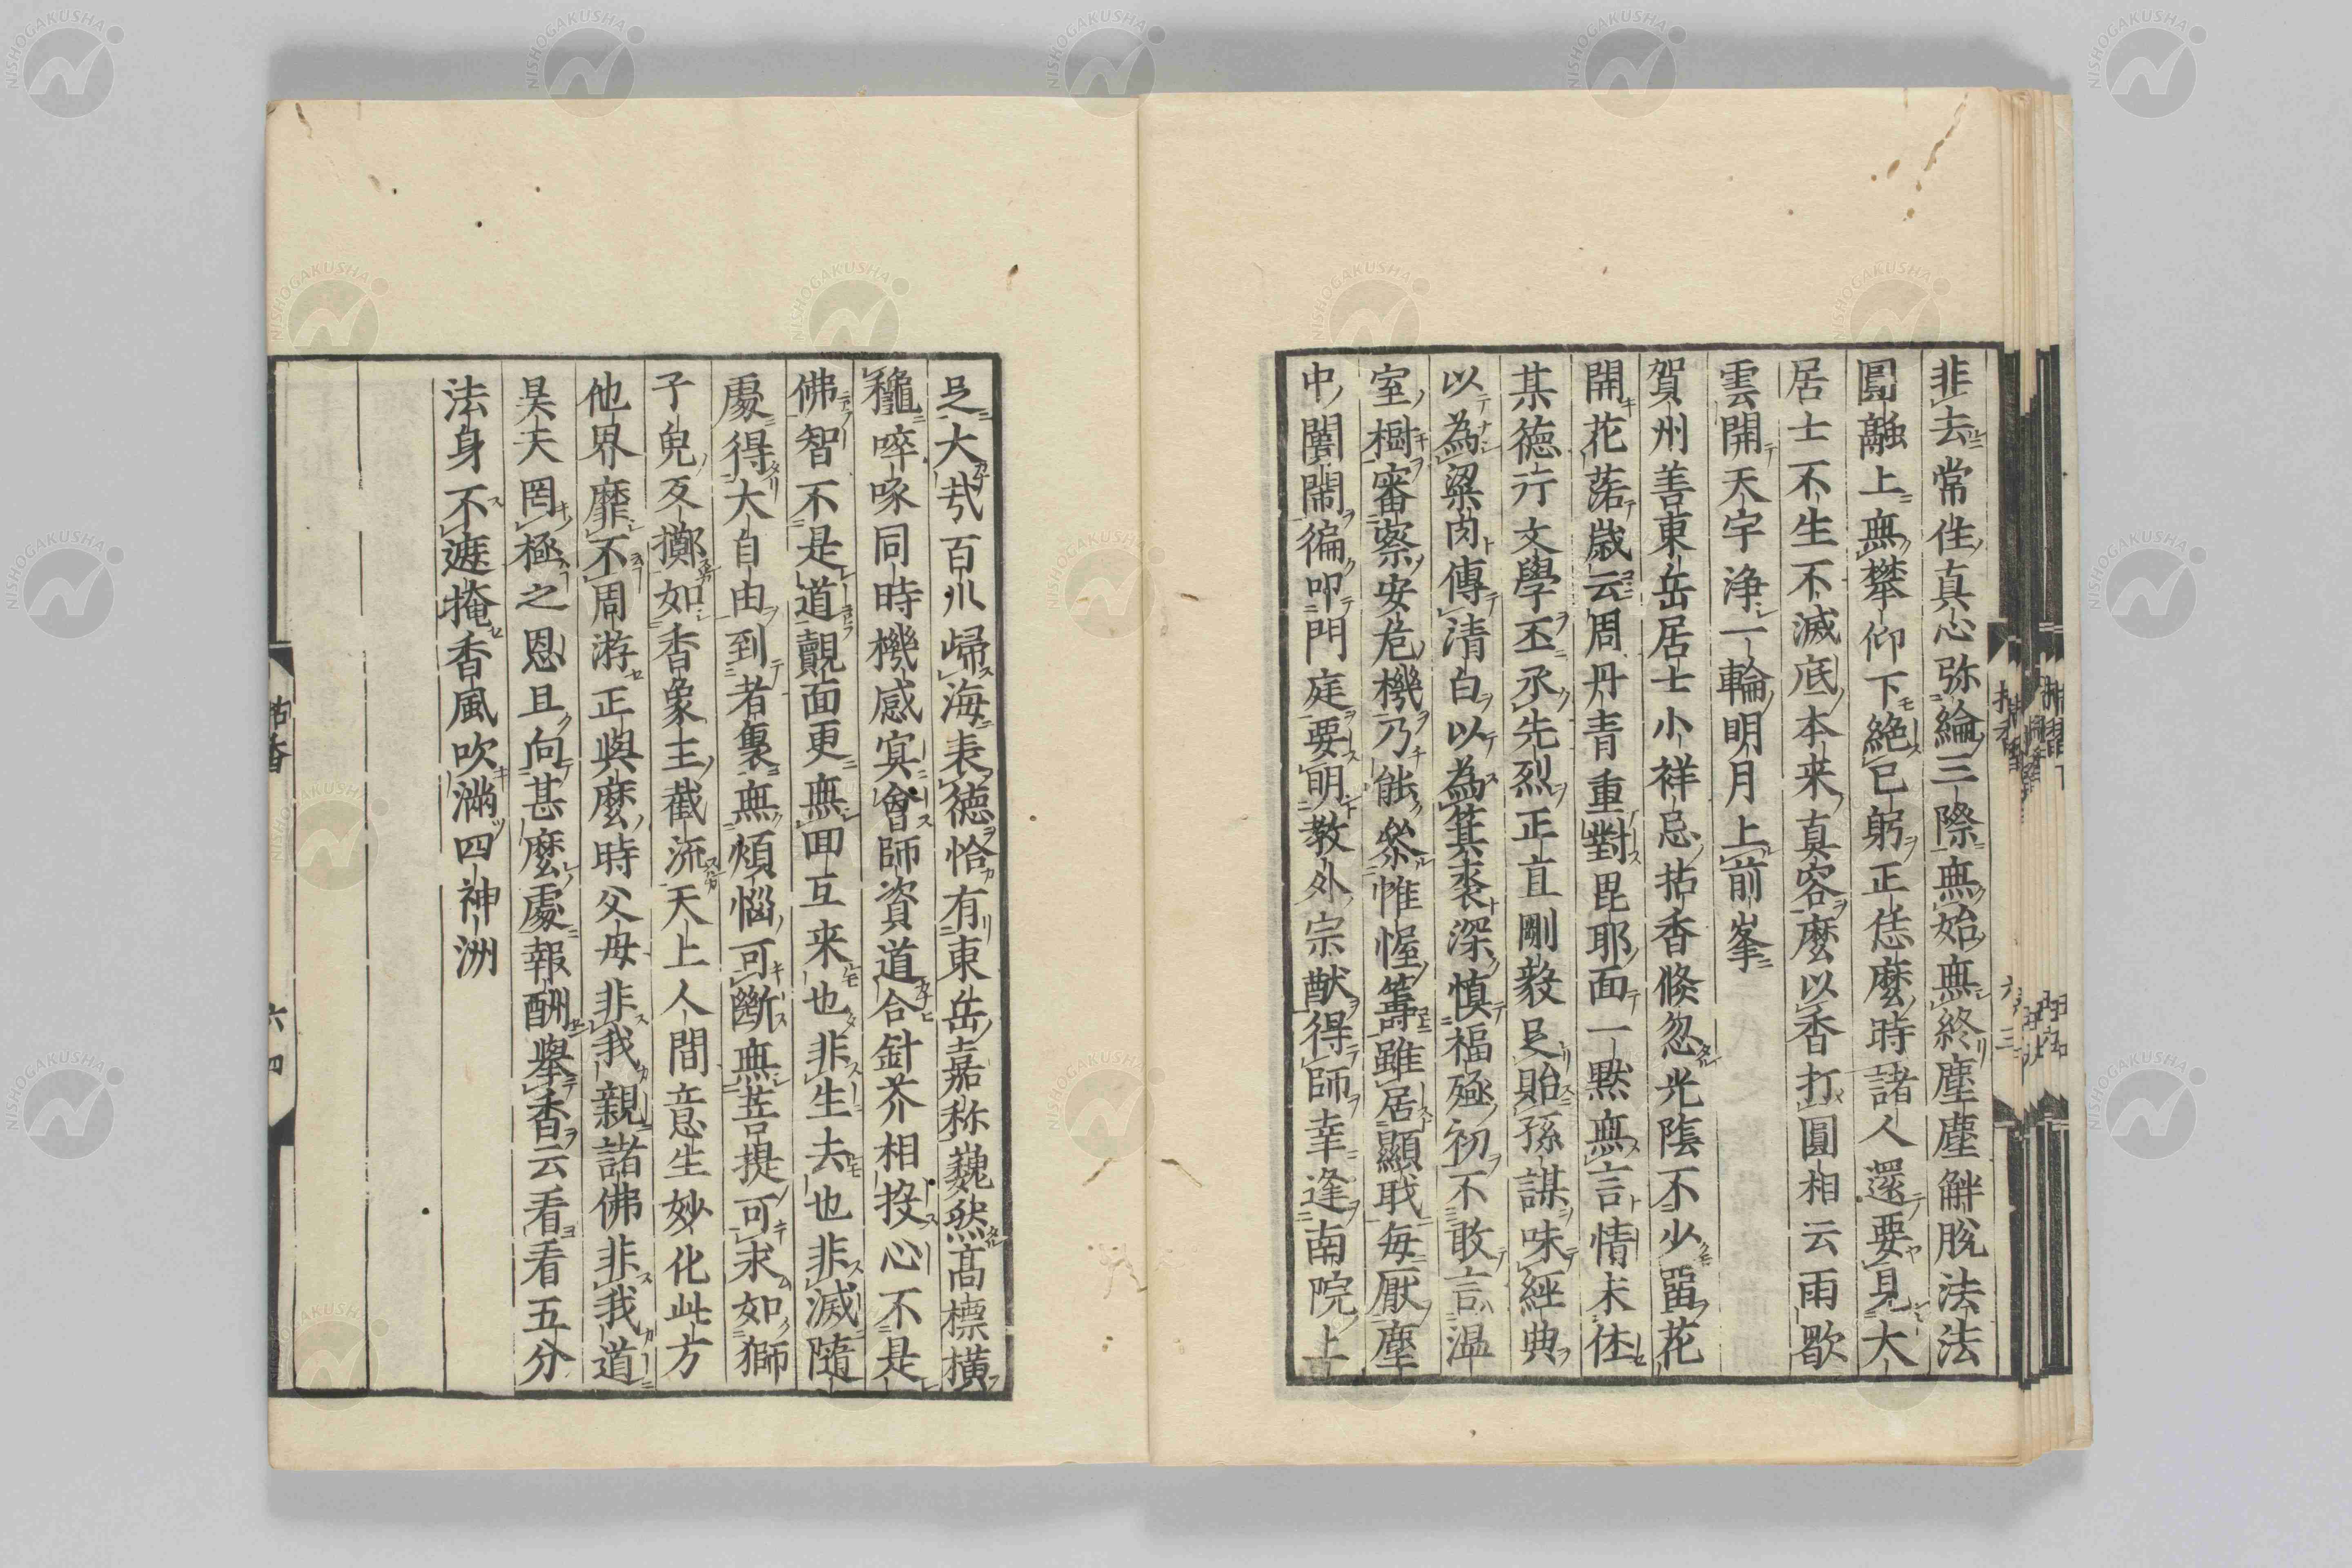 非去常住真心弥綸三際無始無終塵塵解脱法法
圓融上無攀仰下絶已躬正恁麼時諸人還要見大
居士不生不滅底本来真容麼以香打圓相云雨歇
雲開天宇浄一輪明月上前峯
賀州善東岳居士小祥忌拈香倏忽光陰不少畱花
開花落歳云周丹青重對毘耶面一黙無言情未休
某徳行文學丕承先烈正直剛毅足貽孫謀味經典
以為梁肉傳清白以為箕裘深慎福極初不敢言温
室樹審察安危機乃能叅惟幄籌雖居顯職毎厭塵
中闤闠徧叩門庭要明教外宗猷得師幸逢南院上
足大㢤百川歸海表徳恰有東岳嘉称巍然高標横
龝啐啄同時機感冥會師資道合針芥相投心不是
佛智不是道覿面更無回互来也非生去也非滅隨
處得大自由到者裏無煩惱可斷無菩提可求如獅
子兒反擲如香象王截流天上人間意生妙化此方
他界靡不周游正與麼時父母非我親諸佛非我道
昊天罔極之恩且向甚麼處報酬舉香云看看五分
法身不遮掩香風吹滿四神洲
拈香
六四